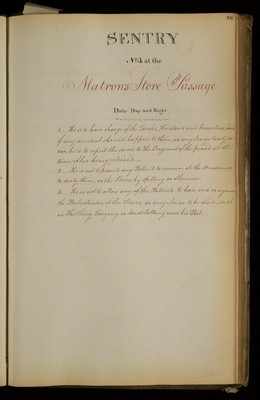 36
SENTRY
No. 4 at the
Matron's Store and Passage
Duty: Day and Night.
1. He is to have charge of the Lamps, Windows and Furniture, and
if any accident should happen to them, or any irregularity
occur, he is to report the same to the Sergeant of the Guard at the
time of his being relieved.
2. He is not to permit any Patient to remain at the Windows, or
to dirty them, or the Floors by spitting or otherwise.
3. He is not to allow any of the Patients to lean over or against
the Balustrades of the Stairs, or any noise to be made, such
as Whistling, Singing or loud Talking near his Post.